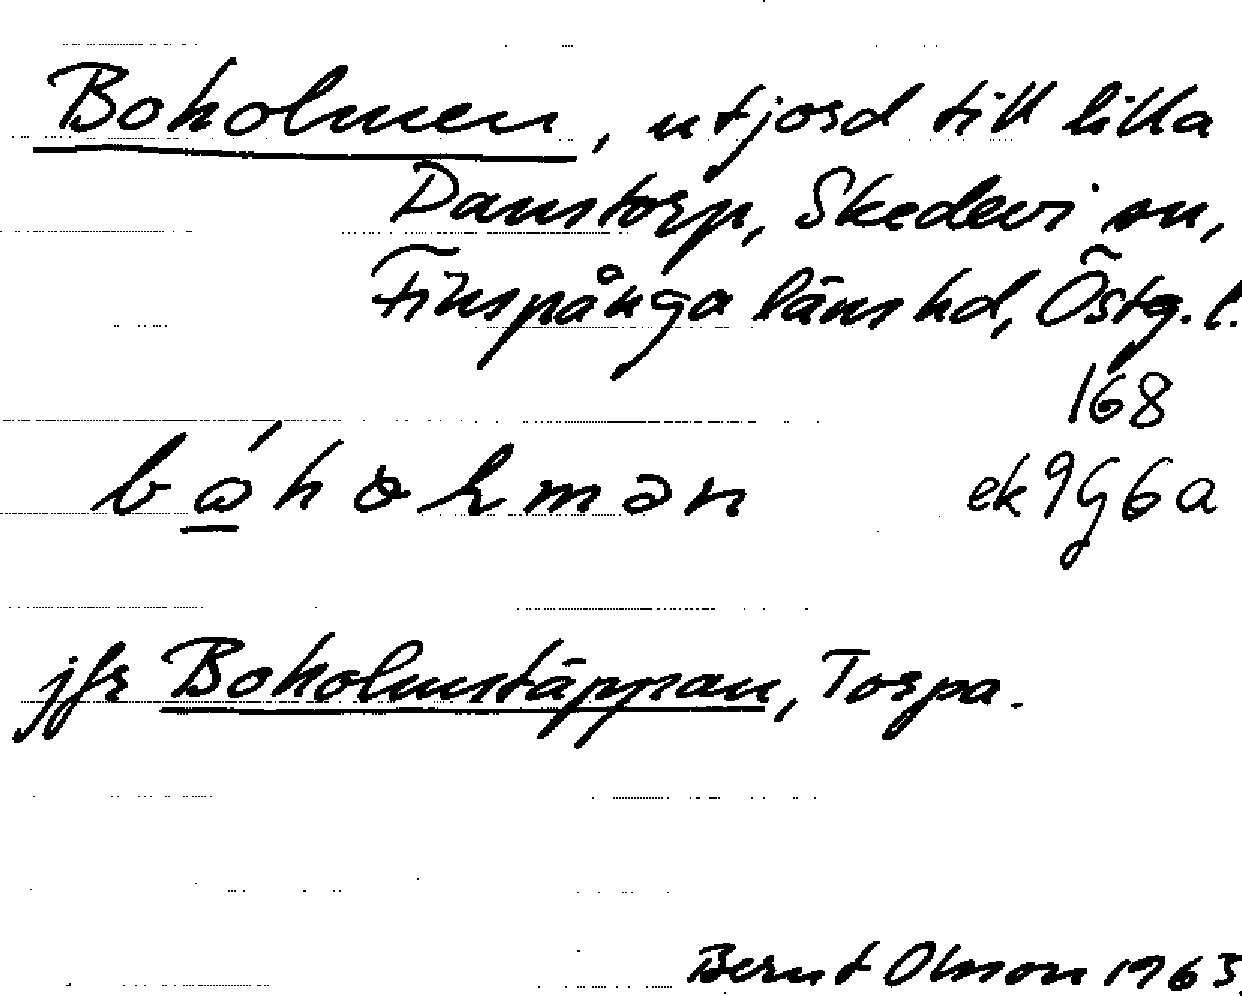 Boholmen, utjord till lilla
Danstorp, Skedevi sn,
Finspånga läns hd, Östg. l.
168
ek 9g6a
jfr Boholmstäppan, Torpa.
Bernt Olsson 1963.